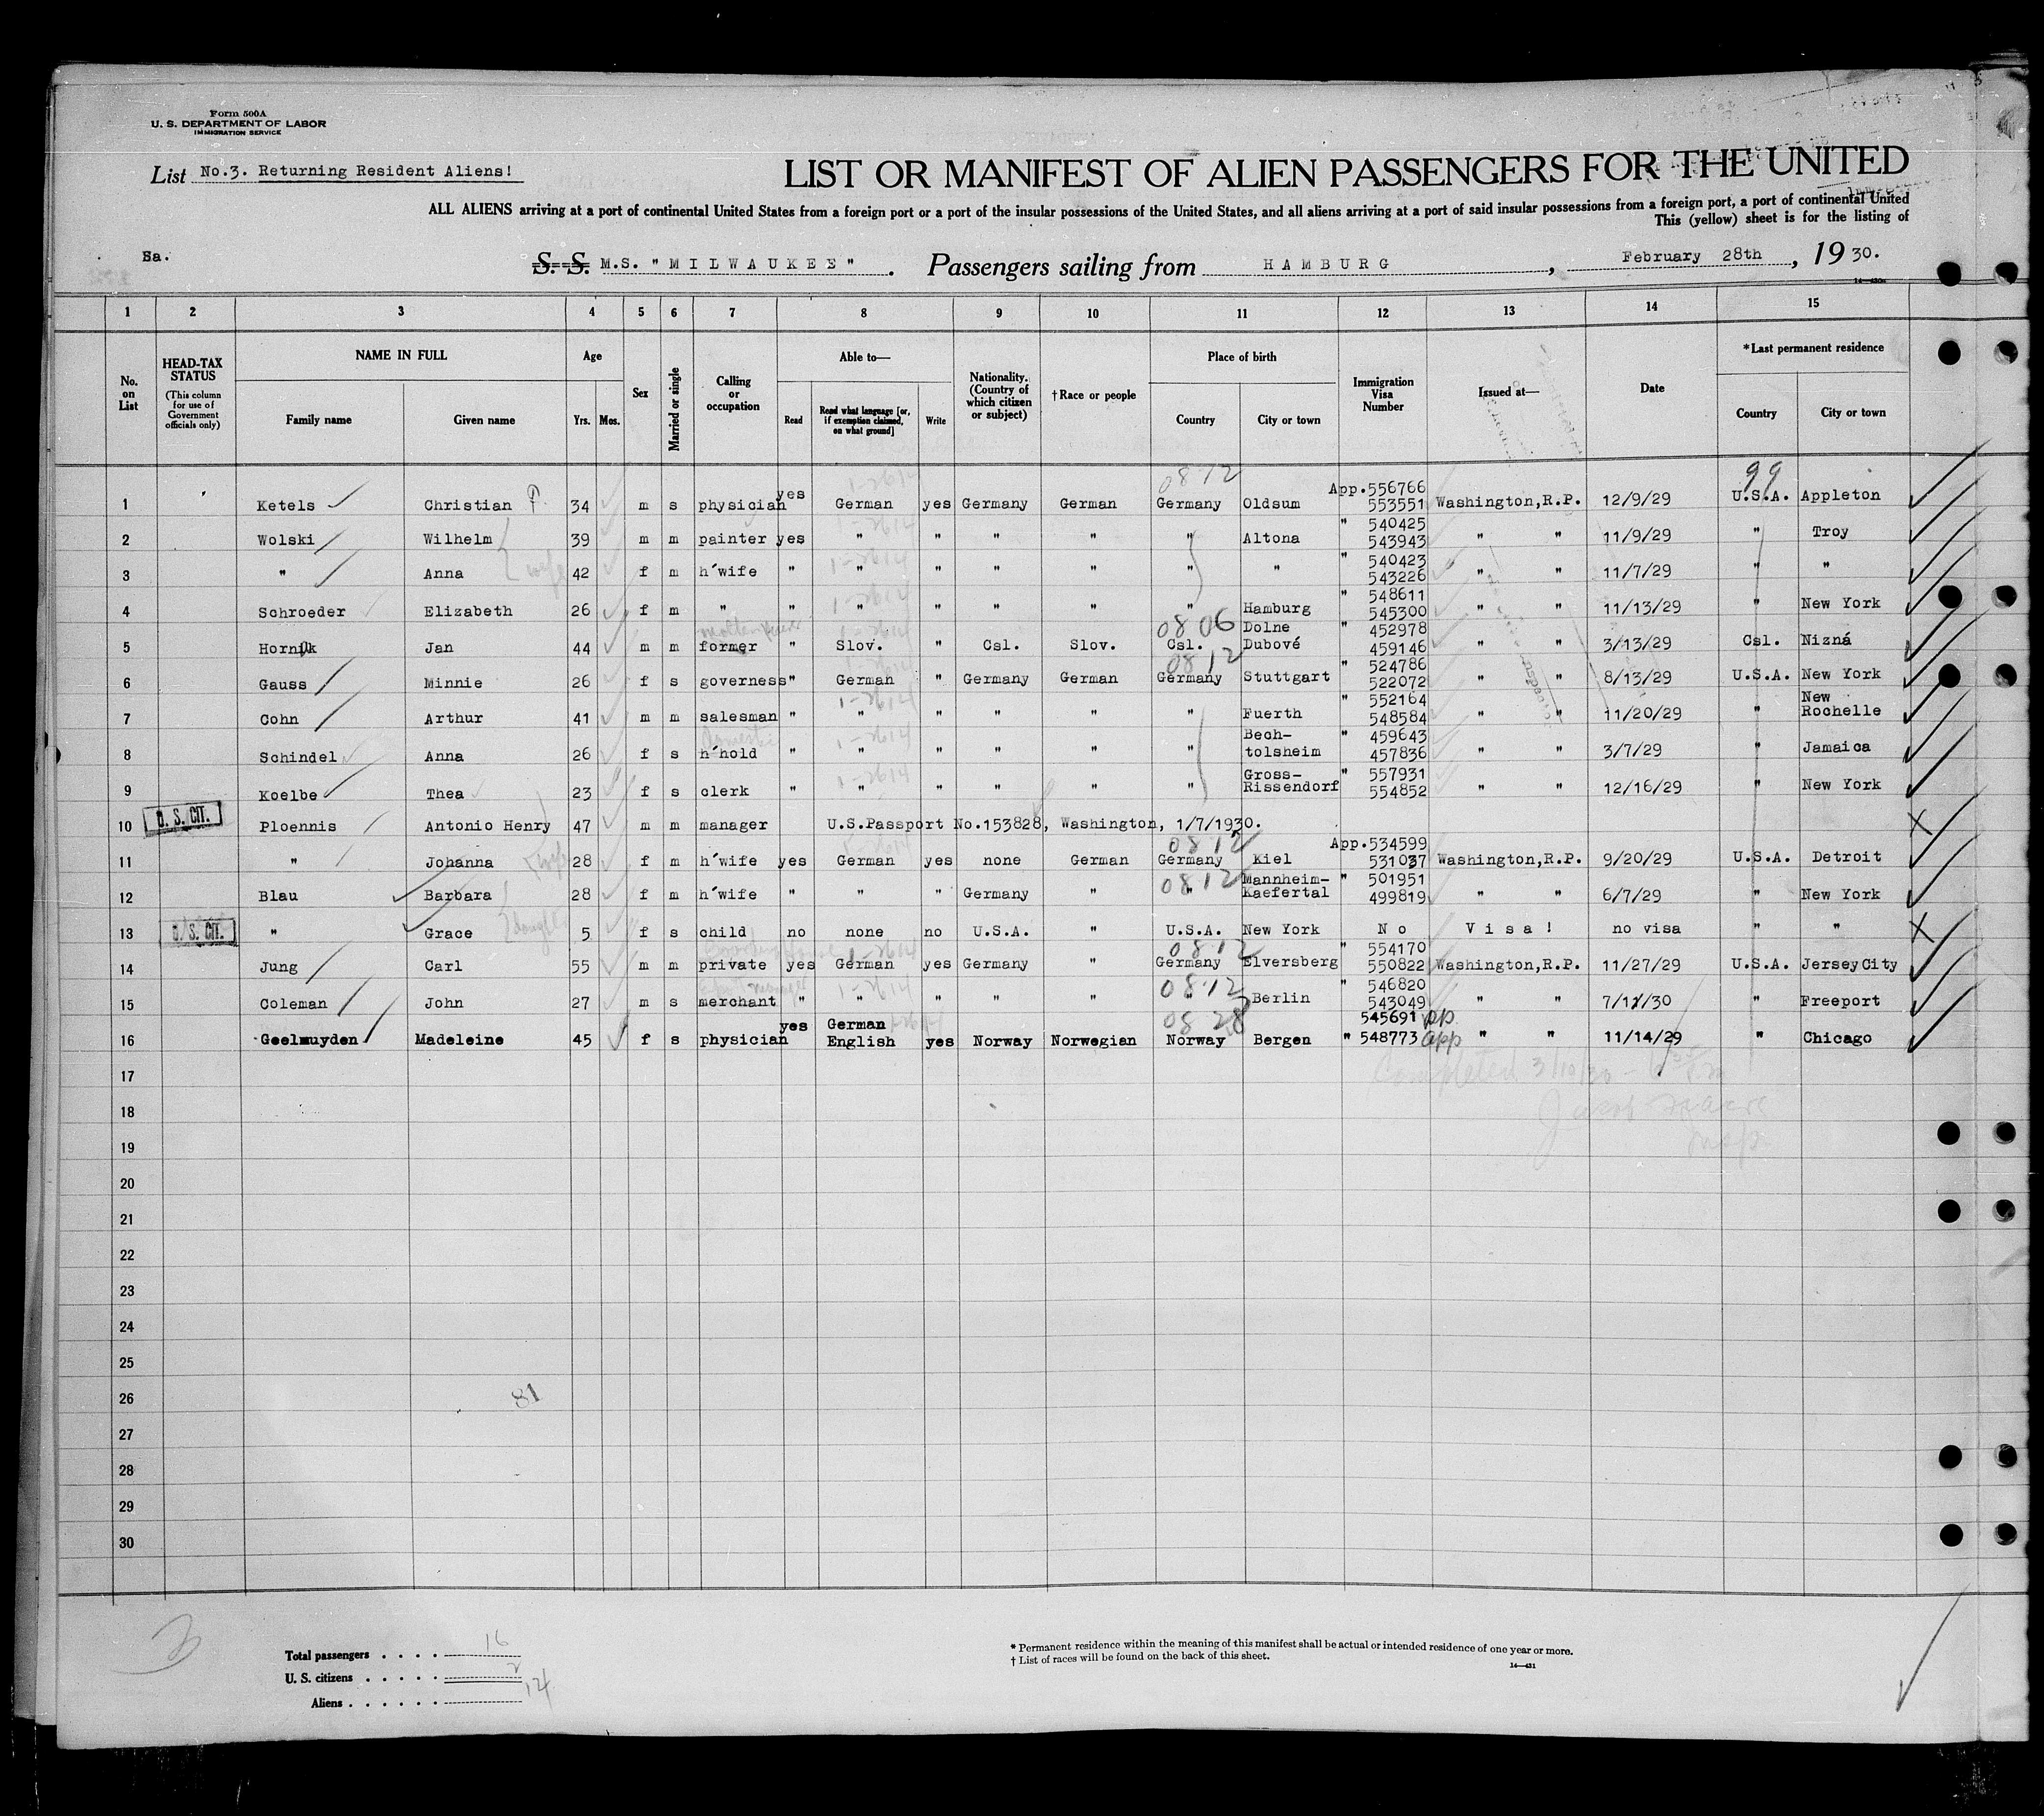 Form 500A
U. S. DEPARTMENT OF LABOR
IMMIGRATION SERVICE
List No.3. Returning Resident Aliens!
LIST OR MANIFEST OF ALIEN PASSENGERS FOR THE UNITED
ALL ALIENS arriving at a port of continental United States from a foreign port or a port of the insular possessions of the United States, and all aliens arriving at a port of said insular possessions from a foreign port, a port of continental United
This (yellow) sheet is for the listing of
Sa.
S. S. M.S. "MILWAUKEE". Passengers sailing from HAMBURG, February 28th, 1930.
1 2 3 4 5 6 7 8 9 10 11 12 13 14 15
No. on List
HEAD-TAX STATUS
(This column for use of Government officials only)
NAME IN FULL
Family name Given name
Age
Yrs. Mos.
Sex
Married or single
Calling or occupation
Able to—
Read
Read what language [or, if exemption claimed, on what ground]
Write
Nationality. (Country of which citizen or subject)
†Race or people
Place of birth
Country City or town
Immigration Visa Number
Issued at—
Date
*Last permanent residence
Country City or town
0812 99
1 Ketels Christian P. 34 m s physician yes German yes Germany German Germany Oldsum App.556766 553551 Washington,R.P. 12/9/29 U.S.A. Appleton
2 Wolski Wilhelm 39 m m painter yes " " " " " Altona " 540425 543943 " " 11/9/29 " Troy
3 " Anna wife 42 f m h'wife " " " " " " " " 540423 543226 " " 11/7/29 " "
4 Schroeder Elizabeth 26 f m " " " " " " " Hamburg " 548611 545300 " " 11/13/29 " New York
0806
5 Hornik Jan 44 m m former " Slov. " Csl. Slov. Csl. Dolne Dubové " 452978 459146 " " 3/13/29 Csl. Nizná
0812
6 Gauss Minnie 26 f s governess " German " Germany German Germany Stuttgart " 524786 522072 " " 8/13/29 U.S.A. New York
7 Cohn Arthur 41 m m salesman " " " " " " Fuerth " 552164 548584 " " 11/20/29 " New Rochelle
domestic
8 Schindel Anna 26 f s h'hold " " " " " " Bech-tolsheim " 459643 457836 " " 3/7/29 " Jamaica
9 Koelbe Thea 23 f s clerk " " " " " " Gross-Rissendorf " 557931 554852 " " 12/16/29 " New York
U. S. CIT.
10 Ploennis Antonio Henry 47 m m manager U.S.Passport No.153828, Washington, 1/7/1930.
0812
11 " Johanna wife 28 f m h'wife yes German yes none German Germany Kiel App.534599 531037 Washington,R.P. 9/20/29 U.S.A. Detroit
12 Blau Barbara 28 f m h'wife " " " Germany " 0812 " Mannheim-Kaefertal " 501951 499819 " " 6/7/29 " New York
U. S. CIT.
13 " Grace daughter 5 f s child no none no U.S.A. " U.S.A. New York No Visa! no visa " "
0812
14 Jung Carl 55 m m private yes German yes Germany " Germany Elversberg " 554170 550822 Washington,R.P. 11/27/29 U.S.A. JerseyCity
15 Coleman John 27 m s merchant " " " " " 0812 " Berlin " 546820 543049 " " 7/11/30 " Freeport
0828
16 Geelmuyden Madeleine 45 f s physician yes German English yes Norway Norwegian Norway Bergen 545691 pp " 548773 app " " 11/14/29 " Chicago
Completed 3/10/30
17
18
19
20
21
22
23
24
25
26
81
27
28
29
30
3
Total passengers . . . . 16
U. S. citizens . . . . . 2
Aliens . . . . . . 14
* Permanent residence within the meaning of this manifest shall be actual or intended residence of one year or more.
† List of races will be found on the back of this sheet.
14—431